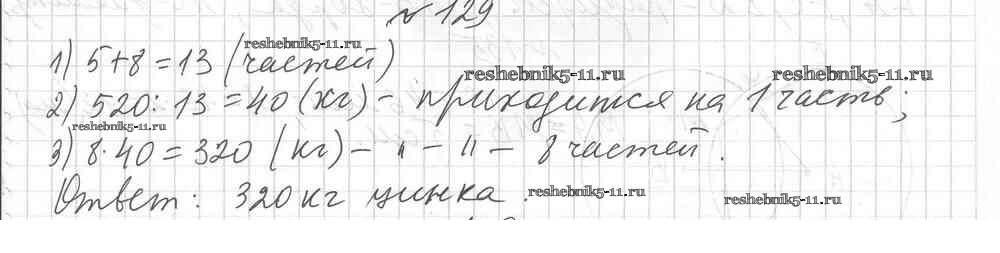 № 129
1) 5+8=13 (частей)
2) 520:13=40 (кг) - приходится на 1 часть;
3) 8·40=320 (кг) - " - " - 8 частей.
Ответ: 320 кг цинка.
reshebnik5-11.ru
reshebnik5-11.ru
reshebnik5-11.ru
reshebnik5-11.ru
reshebnik5-11.ru
reshebnik5-11.ru